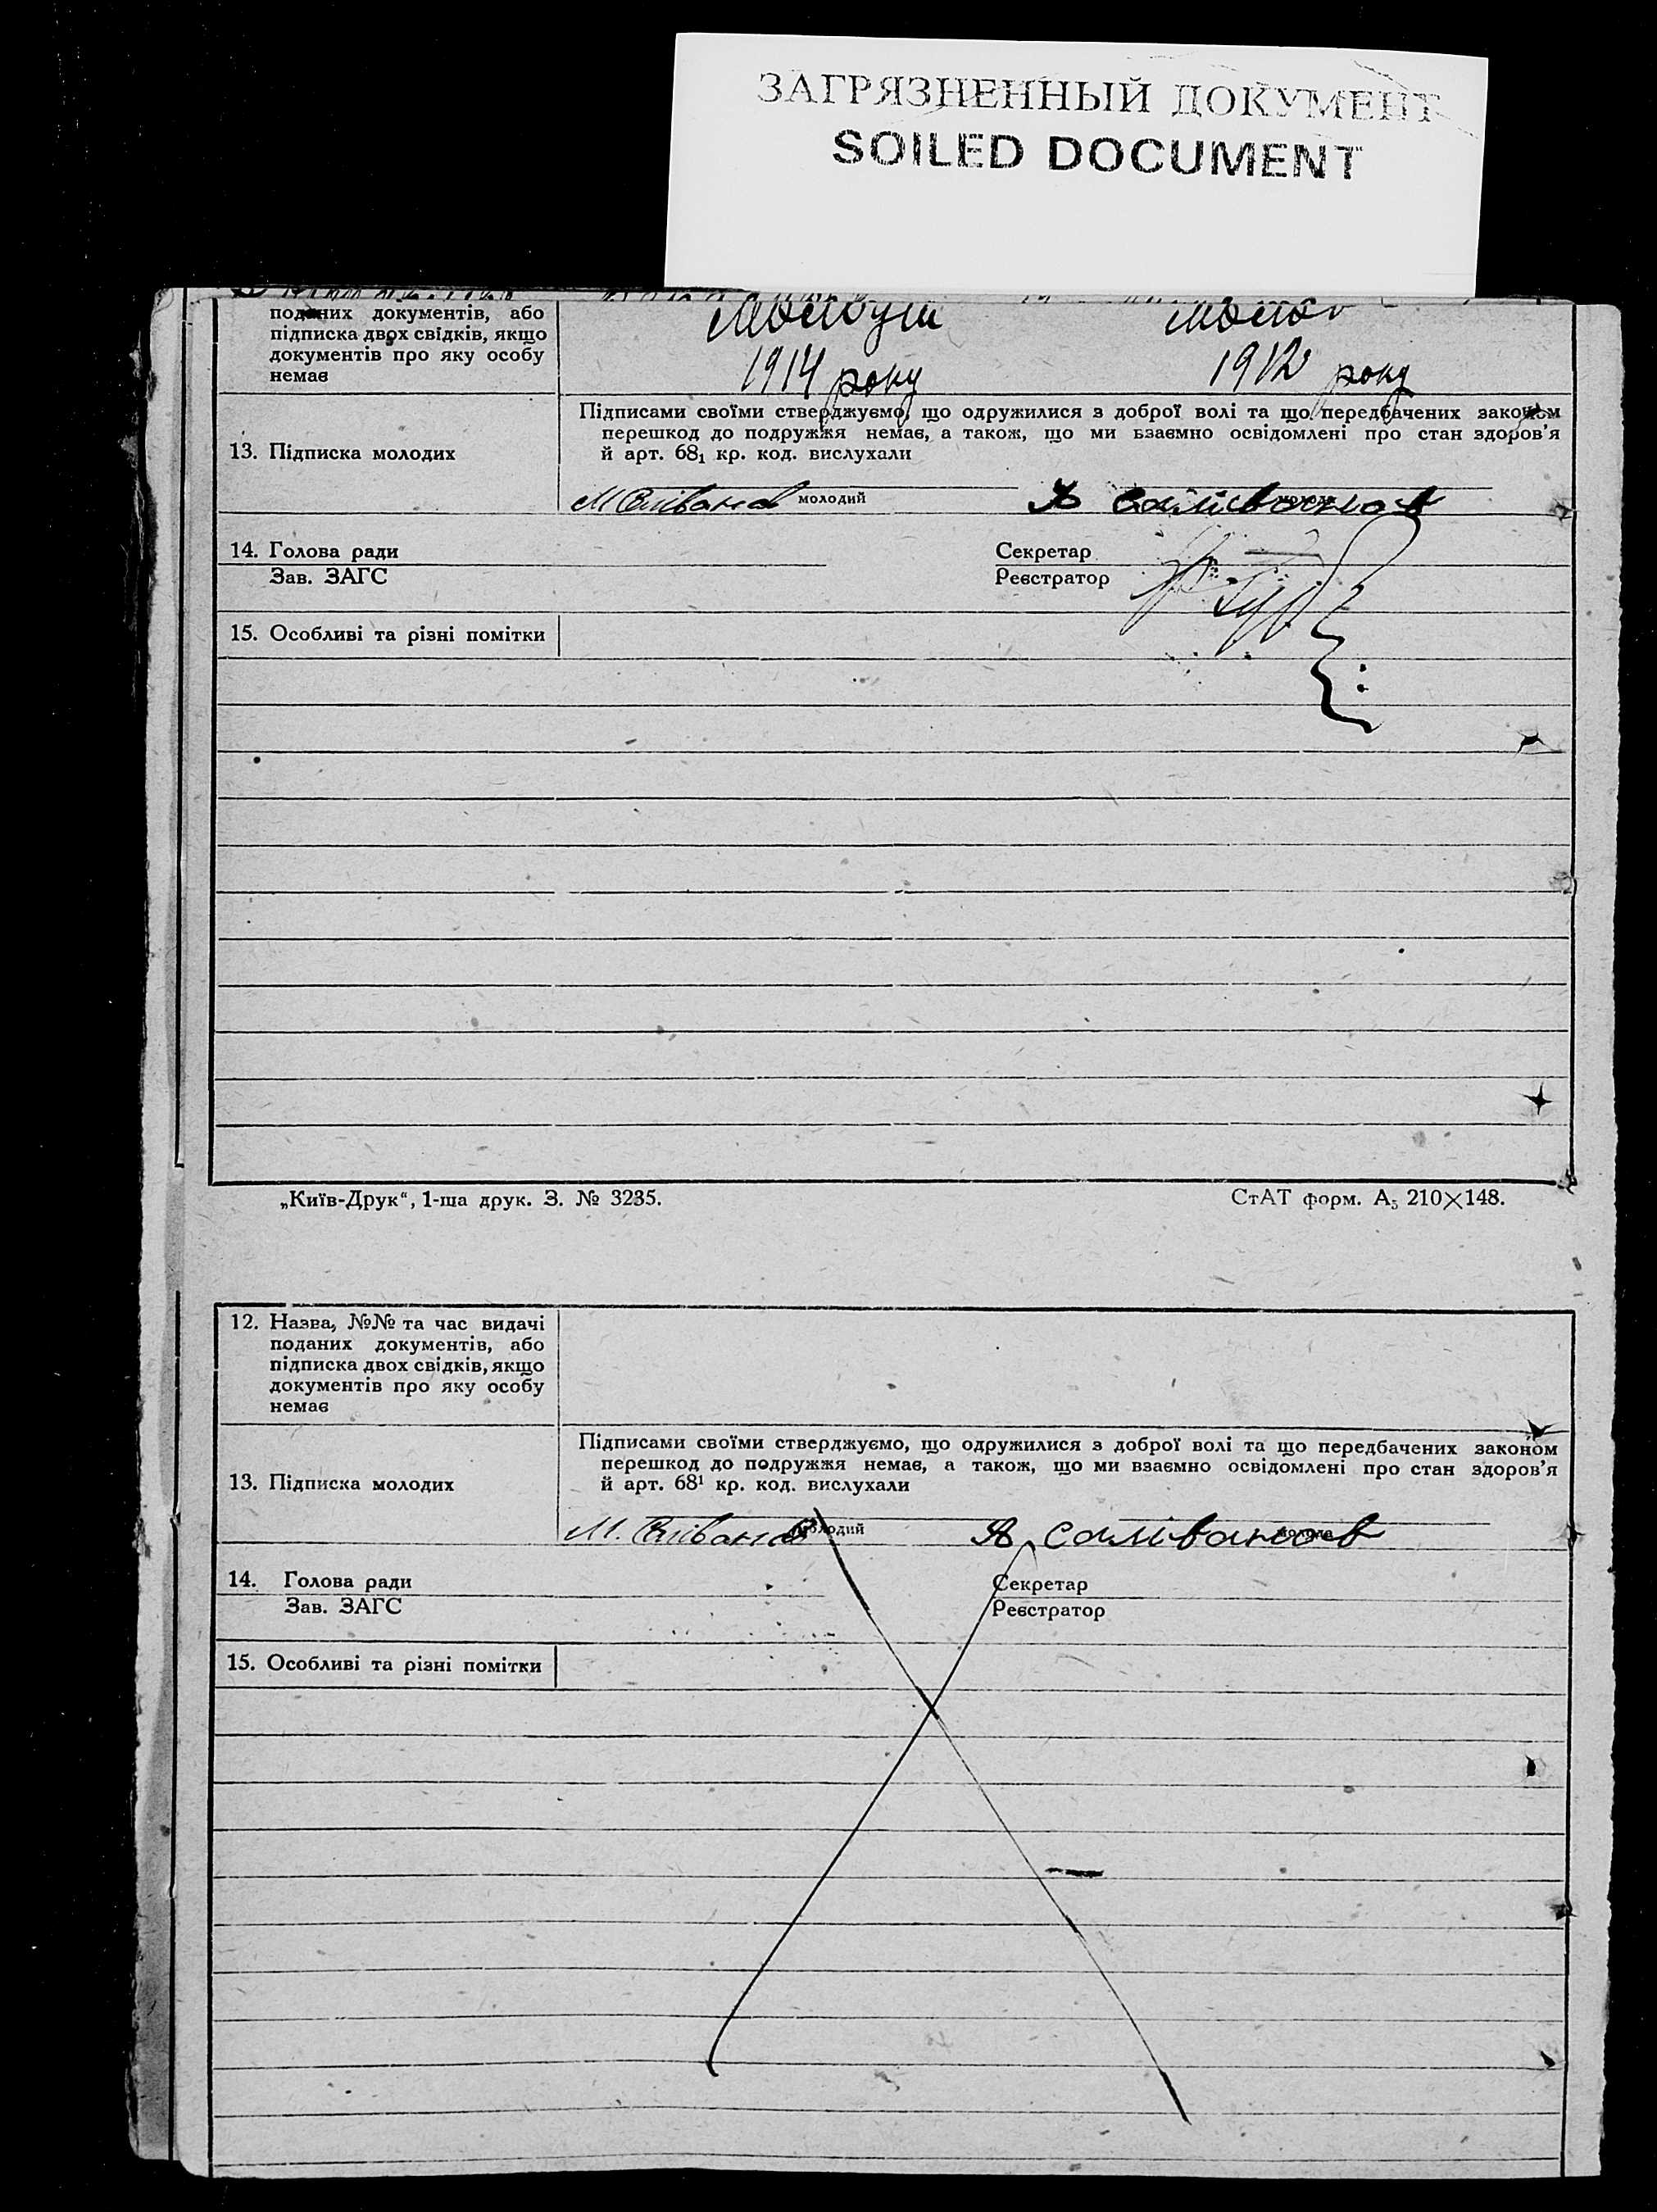 ЗАГРЯЗНЕННЫЙ ДОКУМЕНТ
SOILED DOCUMENT
поданих документів, або
підписка двох свідків, якщо
документів про яку особу
немає
1914 року 1912 року
Підписами своїми стверджуємо, що одружилися з доброї волі та що передбачених законом
перешкод до подружжя немає, а також, що ми взаємно освідомлені про стан здоров'я
13. Підписка молодих й арт. 68₁ кр. код. вислухали
молодий молода
14. Голова ради Секретар
Зав. ЗАГС Реєстратор
15. Особливі та різні помітки
„Київ-Друк“, 1-ша друк. З. № 3235. СтАТ форм. А₅ 210×148.
12. Назва, №№ та час видачі
поданих документів, або
підписка двох свідків, якщо
документів про яку особу
немає
Підписами своїми стверджуємо, що одружилися з доброї волі та що передбачених законом
перешкод до подружжя немає, а також, що ми взаємно освідомлені про стан здоров'я
13. Підписка молодих й арт. 68¹ кр. код. вислухали
М. молодий Я саліванов молода
14. Голова ради Секретар
Зав. ЗАГС Реєстратор
15. Особливі та різні помітки